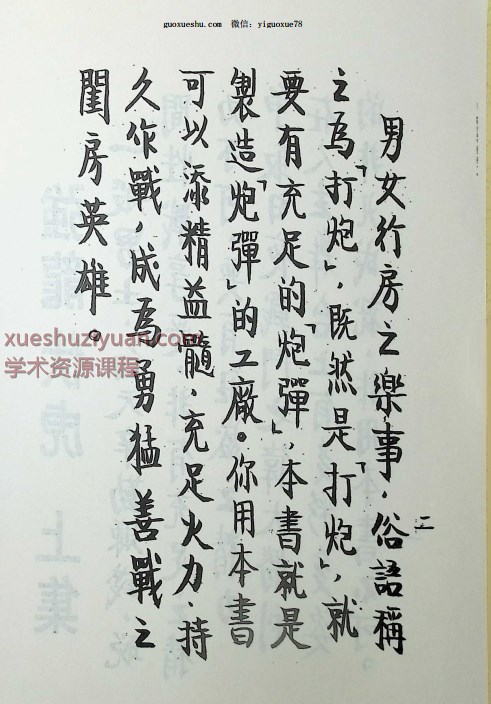 guoxueshu.com 微信：yiguoxue78
男女行房之樂事，俗語稱
之爲「打炮」，既然是「打炮」，就
要有充足的「炮彈」，本書就是
製造「炮彈」的工廠。你用本書
可以添精益髓，充足火力，持
久作戰，成爲勇猛善戰之
閨房英雄。
二
xueshuziyuan.com
学术资源课程
強龍 虎 上集